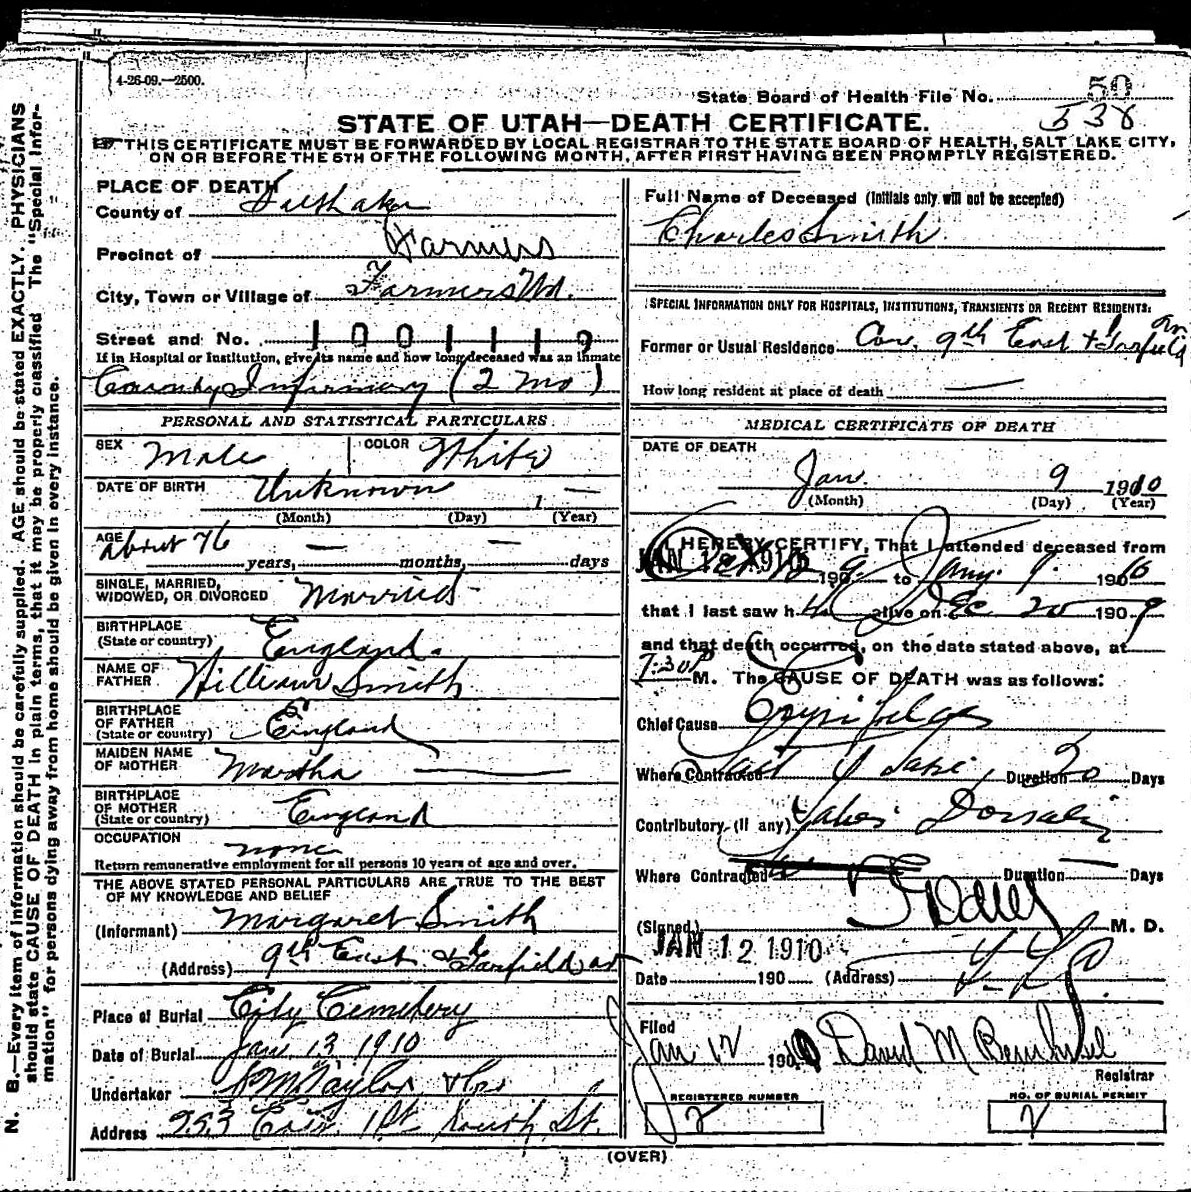 4-26-09.—2500.
State Board of Health File No. 50
538
STATE OF UTAH—DEATH CERTIFICATE.
THIS CERTIFICATE MUST BE FORWARDED BY LOCAL REGISTRAR TO THE STATE BOARD OF HEALTH, SALT LAKE CITY,
ON OR BEFORE THE 5TH OF THE FOLLOWING MONTH, AFTER FIRST HAVING BEEN PROMPTLY REGISTERED.
N. B.—Every item of information should be carefully supplied. AGE should be stated EXACTLY. PHYSICIANS
should state CAUSE OF DEATH in plain terms, that it may be properly classified The "Special Infor-
mation" for persons dying away from home should be given in every instance.
PLACE OF DEATH
County of Salt Lake
Precinct of Farmers
City, Town or Village of Farmers Wd.
Street and No. 1001119
If in Hospital or Institution, give its name and how long deceased was an inmate
County Infirmary (2 mo)
PERSONAL AND STATISTICAL PARTICULARS
SEX Male COLOR White
DATE OF BIRTH Unknown 1 —
(Month) (Day) (Year)
AGE about 76 years, — months, — days
SINGLE, MARRIED,
WIDOWED, OR DIVORCED Married
BIRTHPLACE
(State or country) England.
NAME OF
FATHER William Smith
BIRTHPLACE
OF FATHER
(State or country) England
MAIDEN NAME
OF MOTHER Martha —
BIRTHPLACE
OF MOTHER
(State or country) England
OCCUPATION none
Return remunerative employment for all persons 10 years of age and over.
THE ABOVE STATED PERSONAL PARTICULARS ARE TRUE TO THE BEST
OF MY KNOWLEDGE AND BELIEF
(Informant) Margaret Smith
(Address) 9th East & Garfield av
Place of Burial City Cemetery
Date of Burial Jan 13 1910
Undertaker Taylor
Address 253 East 1st South St.
Full Name of Deceased (Initials only will not be accepted)
Charles Smith.
SPECIAL INFORMATION ONLY FOR HOSPITALS, INSTITUTIONS, TRANSIENTS OR RECENT RESIDENTS:
Former or Usual Residence Cor. 9th East & Garfield av
How long resident at place of death —
MEDICAL CERTIFICATE OF DEATH
DATE OF DEATH
Jan. 9 1910
(Month) (Day) (Year)
I HEREBY CERTIFY, That I attended deceased from
JAN 12 1910 190 to Jany. 9. 1910
that I last saw h alive on Dec 20 1909
and that death occurred, on the date stated above, at
7:30P M. The CAUSE OF DEATH was as follows:
Chief Cause Erysipelas
Where Contracted Salt Lake Duration 20 Days
Contributory (if any) Tabes Dorsalis
Where Contracted Duration — Days
(Signed) M. D.
JAN 12 1910
Date 190 (Address)
Filed
Jan 12 1900 David M
Registrar
REGISTERED NUMBER
2
NO. OF BURIAL PERMIT
2
(OVER)